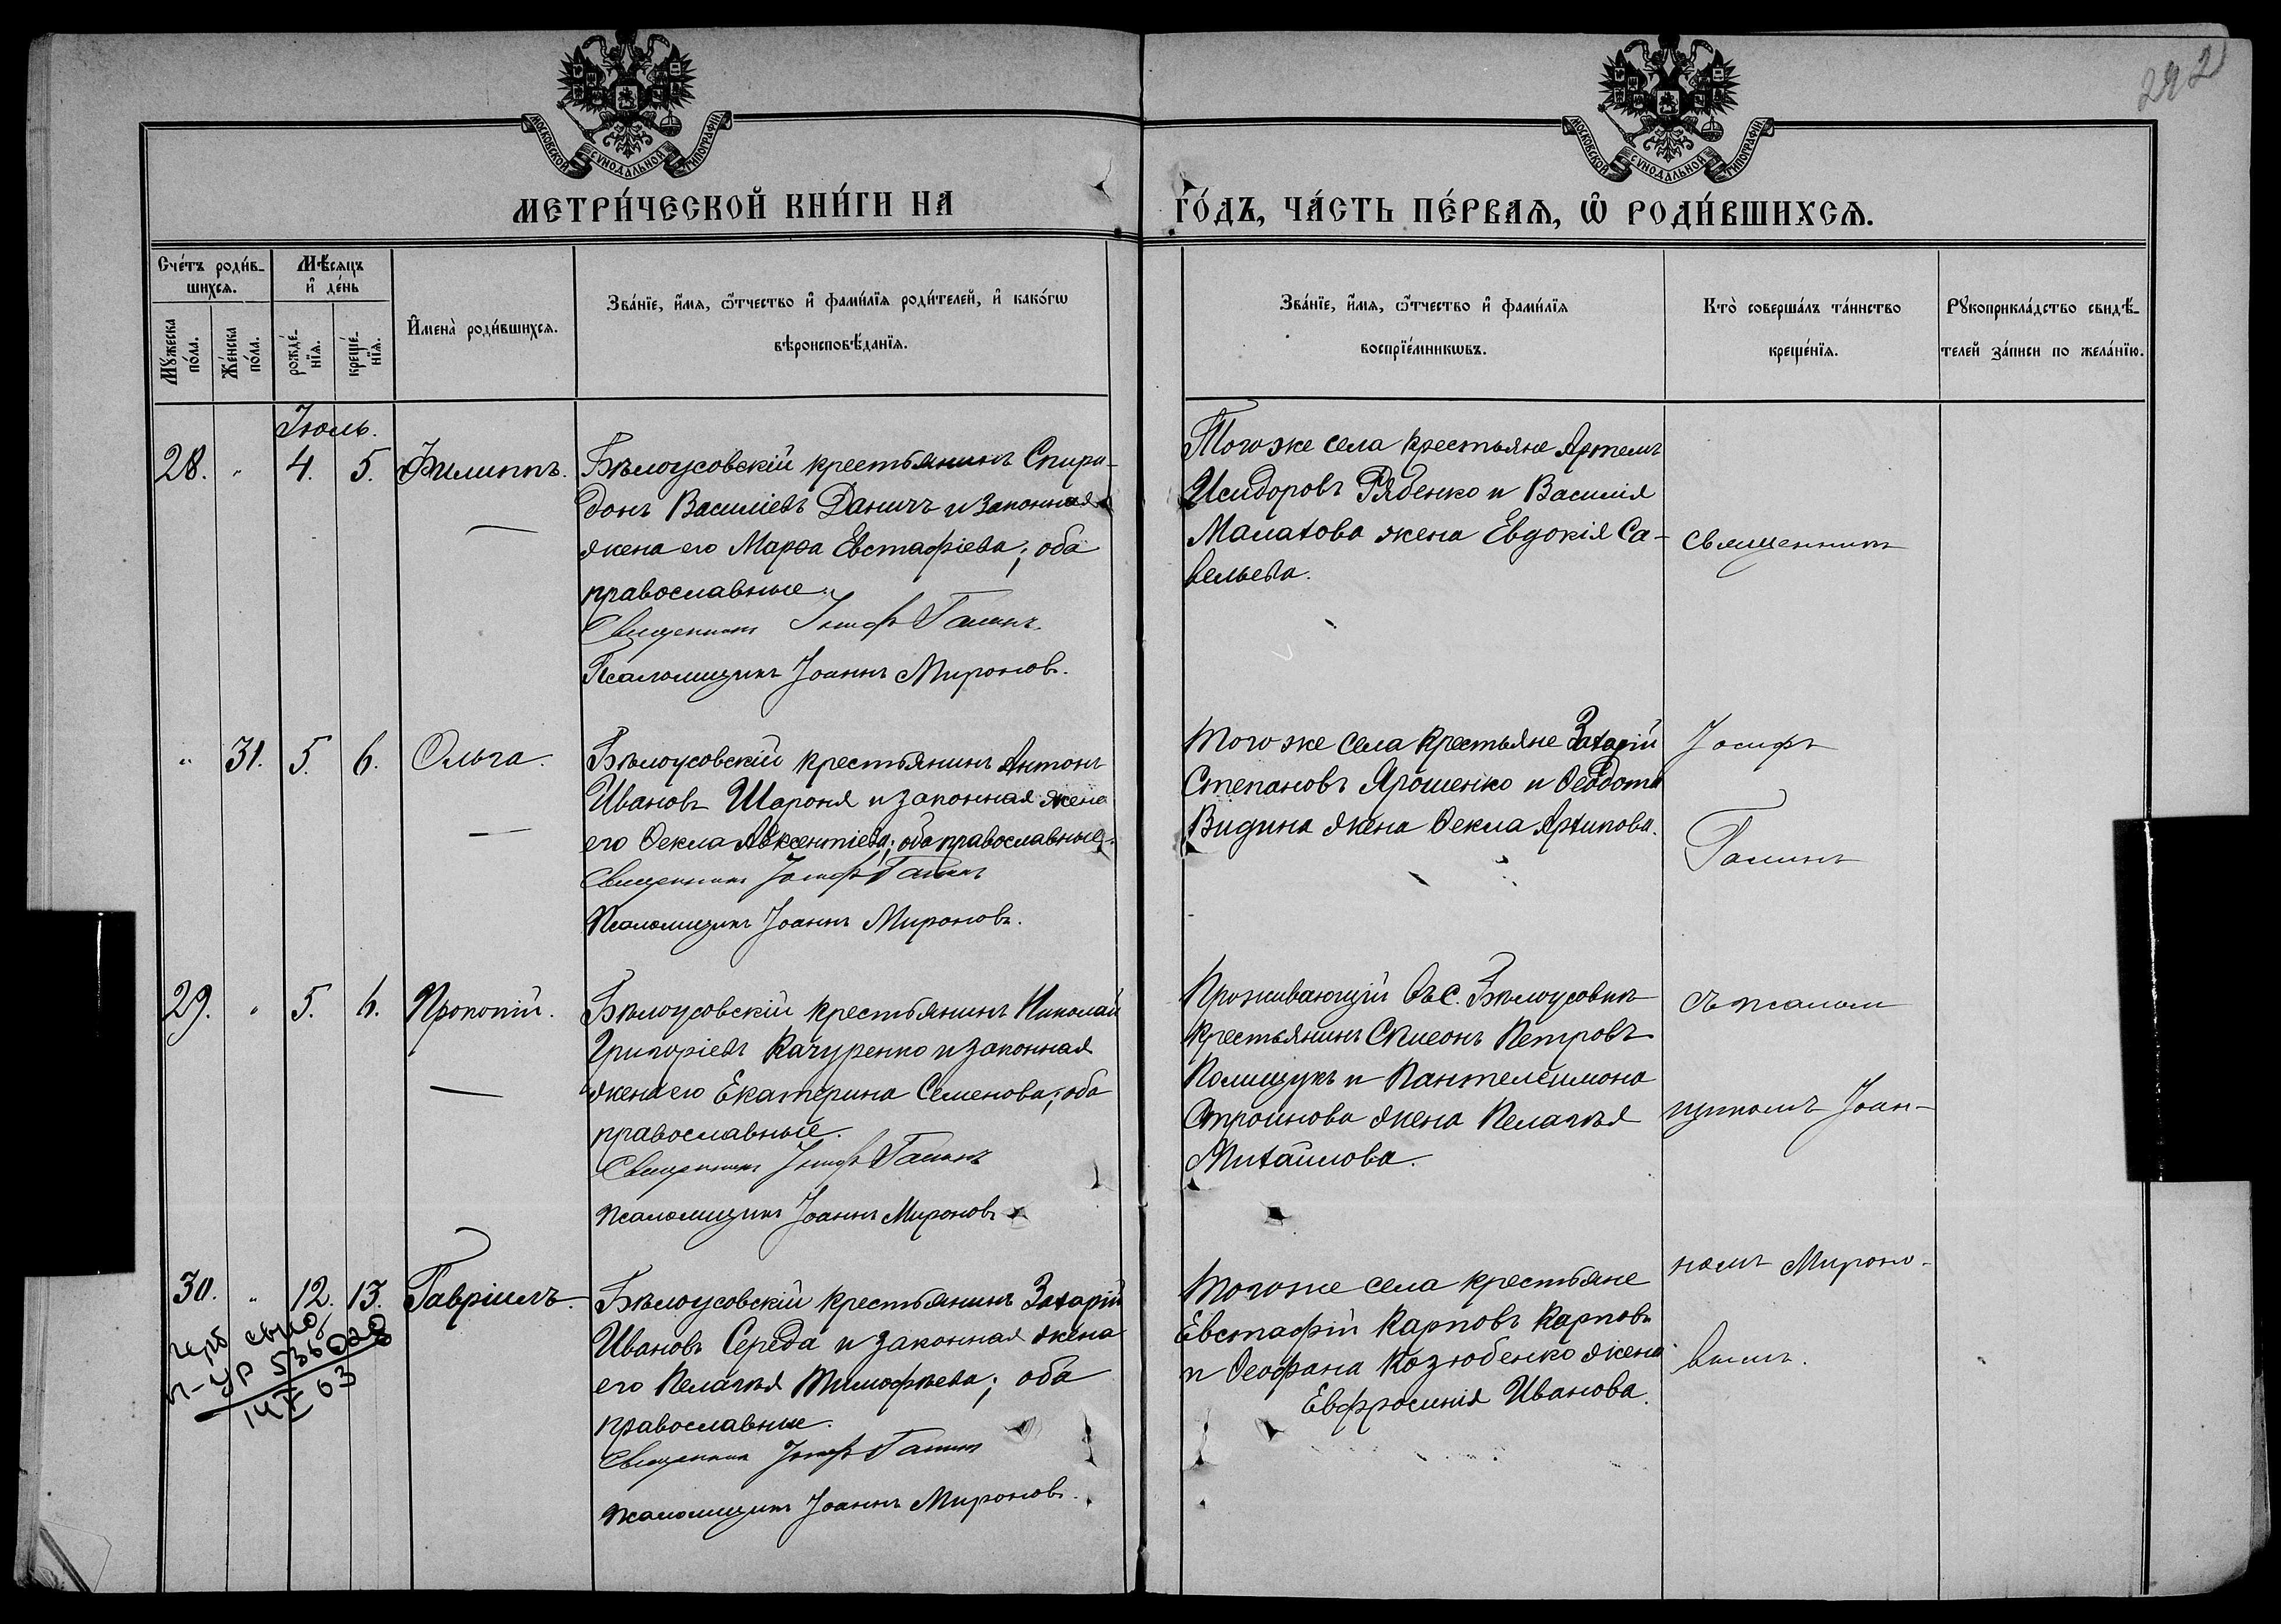 292
МОСКОВСКОЙ СѴНОДАЛЬНОЙ ТИПОГРАФІИ
МОСКОВСКОЙ СѴНОДАЛЬНОЙ ТИПОГРАФІИ
МЕТРИ́ЧЕСКОЙ КНИ́ГИ НА
ГО́ДЪ, ЧА́СТЬ ПЕ́РВАѦ, Ѡ҆ РОДИ́ВШИХСѦ.
Сче́тъ роди́в-
шихсѧ.
Мѣ́сѧцъ
и҆ де́нь
Мꙋ́жеска
по́ла.
Же́нска
по́ла.
рожде́-
нїѧ.
креще́-
нїѧ.
И҆мена̀ роди́вшихсѧ.
Зва́нїе, и҆́мѧ, ѻ҆́тчество и҆ фами́лїѧ роди́телей, и҆ како́гѡ
вѣроисповѣ́данїѧ.
Зва́нїе, и҆́мѧ, ѻ҆́тчество и҆ фами́лїѧ
воспрїе́мникѡвъ.
Кто̀ соверша́лъ та́инство
креще́нїѧ.
Рꙋкоприкла́дство свидѣ́-
телей за́писи по жела́нїю.
Іюль.
28. " 4. 5. Филиппъ.
Бѣлоусовскій крестьянинъ Спири-
донъ Василіевъ Даничъ и законная
жена его Марѳа Евстафіева; оба
православные.
Священникъ Іосифъ Галинъ
Псаломщикъ Іоаннъ Мироновъ.
Того же села крестьяне Артемъ
Исидоровъ Рябенко и Василія
Малахова жена Евдокія Са-
вельева.
Священникъ
" 31. 5. 6. Ольга.
Бѣлоусовскій крестьянинъ Антонъ
Ивановъ Шароня и законная жена
его Ѳекла Авксентіева; оба православные.
Священникъ Іосифъ Галинъ
Псаломщикъ Іоаннъ Мироновъ.
Того же села крестьяне Захарій
Степановъ Ярошенко и Ѳеодота
Видина жена Ѳекла Архипова.
Іосифъ
Галинъ
29. " 5. 6. Прокопій.
Бѣлоусовскій крестьянинъ Николай
Григоріевъ Качуренко и законная
жена его Екатерина Семенова; оба
православные.
Священникъ Іосифъ Галинъ
Псаломщикъ Іоаннъ Мироновъ
Проживающій въ с. Бѣлоусовкѣ
крестьянинъ Симеонъ Петровъ
Полищукъ и Пантелеимона
Строинова жена Пелагія
Михаилова.
съ псалом
щикомъ Іоан-
30. " 12. 13. Гавріилъ.
Бѣлоусовскій крестьянинъ Захарій
Ивановъ Середа и законная жена
его Пелагія Тимофѣева; оба
православные.
Священникъ Іосифъ Галинъ
Псаломщикъ Іоаннъ Мироновъ.
Того же села крестьяне
Евстафій Карповъ Карповъ
и Ѳеофана Козюбенко жена
Евфросинія Иванова.
номъ Мироно-
вымъ.
II-УР 536028
14 X 63